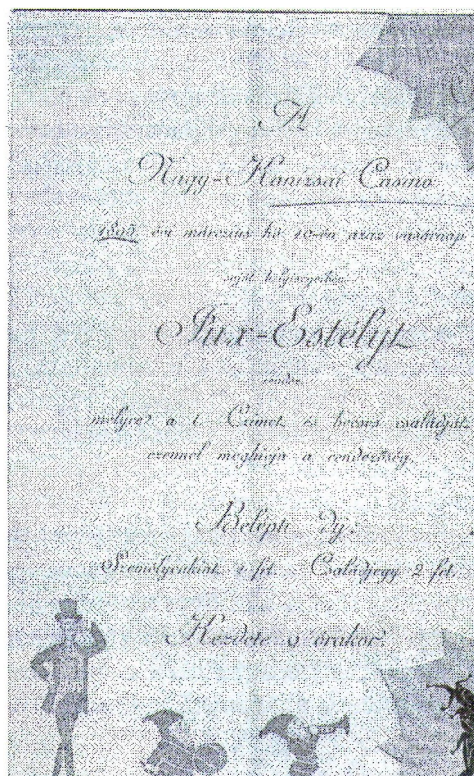 A
Nagy-Kanizsai Casino
1895. évi márczius hó 10-én azaz vasárnap
saját helyiségeiben
Jux-Estélyt
rendez
melyre a t. Czimet és becses családját
ezennel meghívja a rendezőség.
Belépti díj:
Személyenkint 1 frt. Családjegy 2 frt.
Kezdete 9 órakor.